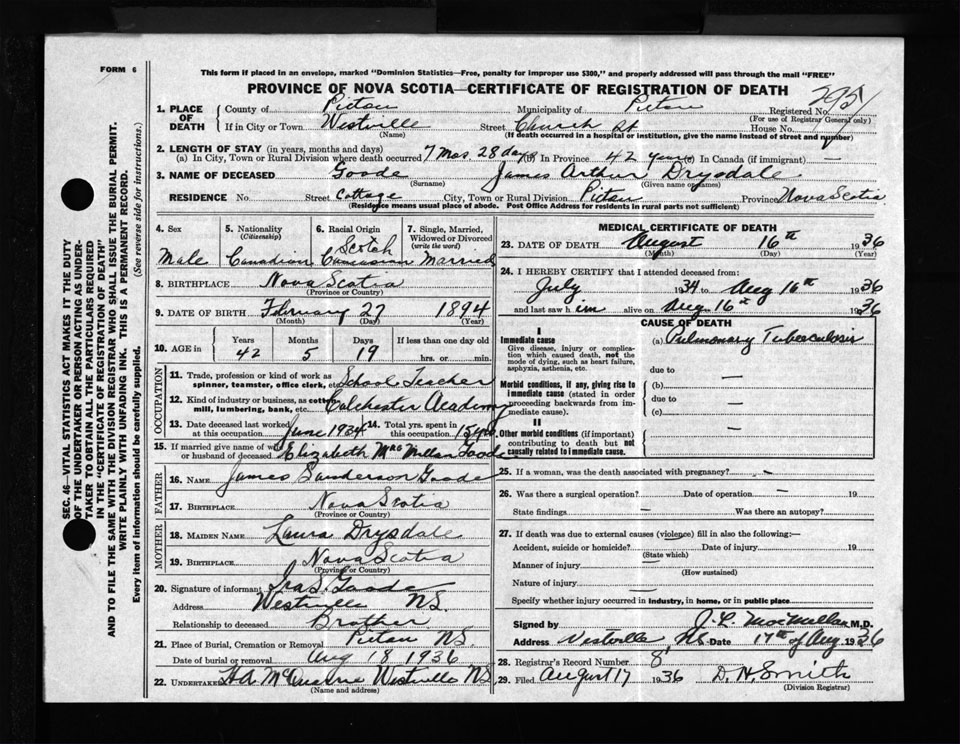 FORM 6
This form if placed in an envelope, marked "Dominion Statistics—Free, penalty for improper use $300," and properly addressed will pass through the mail "FREE"
PROVINCE OF NOVA SCOTIA—CERTIFICATE OF REGISTRATION OF DEATH
SEC. 46—VITAL STATISTICS ACT MAKES IT THE DUTY
OF THE UNDERTAKER OR PERSON ACTING AS UNDER-
TAKER TO OBTAIN ALL THE PARTICULARS REQUIRED
IN THE "CERTIFICATE OF REGISTRATION OF DEATH"
AND TO FILE THE SAME WITH THE DIVISION REGISTRAR WHO SHALL ISSUE THE BURIAL PERMIT.
WRITE PLAINLY WITH UNFADING INK. THIS IS A PERMANENT RECORD.
Every item of information should be carefully supplied. (See reverse side for instructions.)
1. PLACE OF DEATH County of Pictou Municipality of Pictou Registered No. 2951
(For use of Registrar General only)
If in City or Town Westville Street Church St House No.
(Name) (If death occurred in a hospital or institution, give the name instead of street and number)
2. LENGTH OF STAY (in years, months and days)
(a) In City, Town or Rural Division where death occurred 7 Mos 28 days (b) In Province 42 years (c) In Canada (if immigrant) —
3. NAME OF DECEASED Goode James Arthur Drysdale
(Surname) (Given name or names)
RESIDENCE No. Street Cottage City, Town or Rural Division Pictou Province Nova Scotia
(Residence means usual place of abode. Post Office Address for residents in rural parts not sufficient)
4. Sex 5. Nationality (Citizenship) 6. Racial Origin 7. Single, Married, Widowed or Divorced (write the word)
Male Canadian Scotch Caucasian Married
8. BIRTHPLACE Nova Scotia
(Province or Country)
9. DATE OF BIRTH February 27 1894
(Month) (Day) (Year)
10. AGE in Years Months Days If less than one day old
42 5 19 hrs. or min.
OCCUPATION
11. Trade, profession or kind of work as spinner, teamster, office clerk, etc. School Teacher
12. Kind of industry or business, as cotton mill, lumbering, bank, etc. Colchester Academy
13. Date deceased last worked at this occupation June 1934 14. Total yrs. spent in this occupation 15 yrs.
15. If married give name of wife or husband of deceased Elizabeth McMillan Goode
FATHER
16. NAME James Sanderson Goode
17. BIRTHPLACE Nova Scotia
(Province or Country)
MOTHER
18. MAIDEN NAME Laura Drysdale
19. BIRTHPLACE Nova Scotia
(Province or Country)
20. Signature of informant Ira S. Goode
Address Westville NS.
Relationship to deceased Brother
21. Place of Burial, Cremation or Removal Pictou NS.
Date of burial or removal Aug 18 1936
22. UNDERTAKER Westville NS.
(Name and address)
MEDICAL CERTIFICATE OF DEATH
23. DATE OF DEATH August 16th 1936
(Month) (Day) (Year)
24. I HEREBY CERTIFY that I attended deceased from:
July 1934 to Aug 16th 1936
and last saw him alive on Aug 16th 1936
CAUSE OF DEATH
I
Immediate cause (a) Pulmonary Tuberculosis
Give disease, injury or complication which caused death, not the mode of dying, such as heart failure, asphyxia, asthenia, etc.
due to
Morbid conditions, if any, giving rise to immediate cause (stated in order proceeding backwards from immediate cause). (b) —
due to
(c) —
II
Other morbid conditions (if important) contributing to death but not causally related to immediate cause. —
25. If a woman, was the death associated with pregnancy? —
26. Was there a surgical operation? — Date of operation — 19
State findings — Was there an autopsy?
27. If death was due to external causes (violence) fill in also the following:—
Accident, suicide or homicide? Date of injury 19
(State which)
Manner of injury
(How sustained)
Nature of injury
Specify whether injury occurred in industry, in home, or in public place
Signed by J. L. MacMillan M.D.
Address Westville NS Date 17th of Aug 1936
28. Registrar's Record Number 8
29. Filed August 17 1936 D. H. Smith
(Division Registrar)